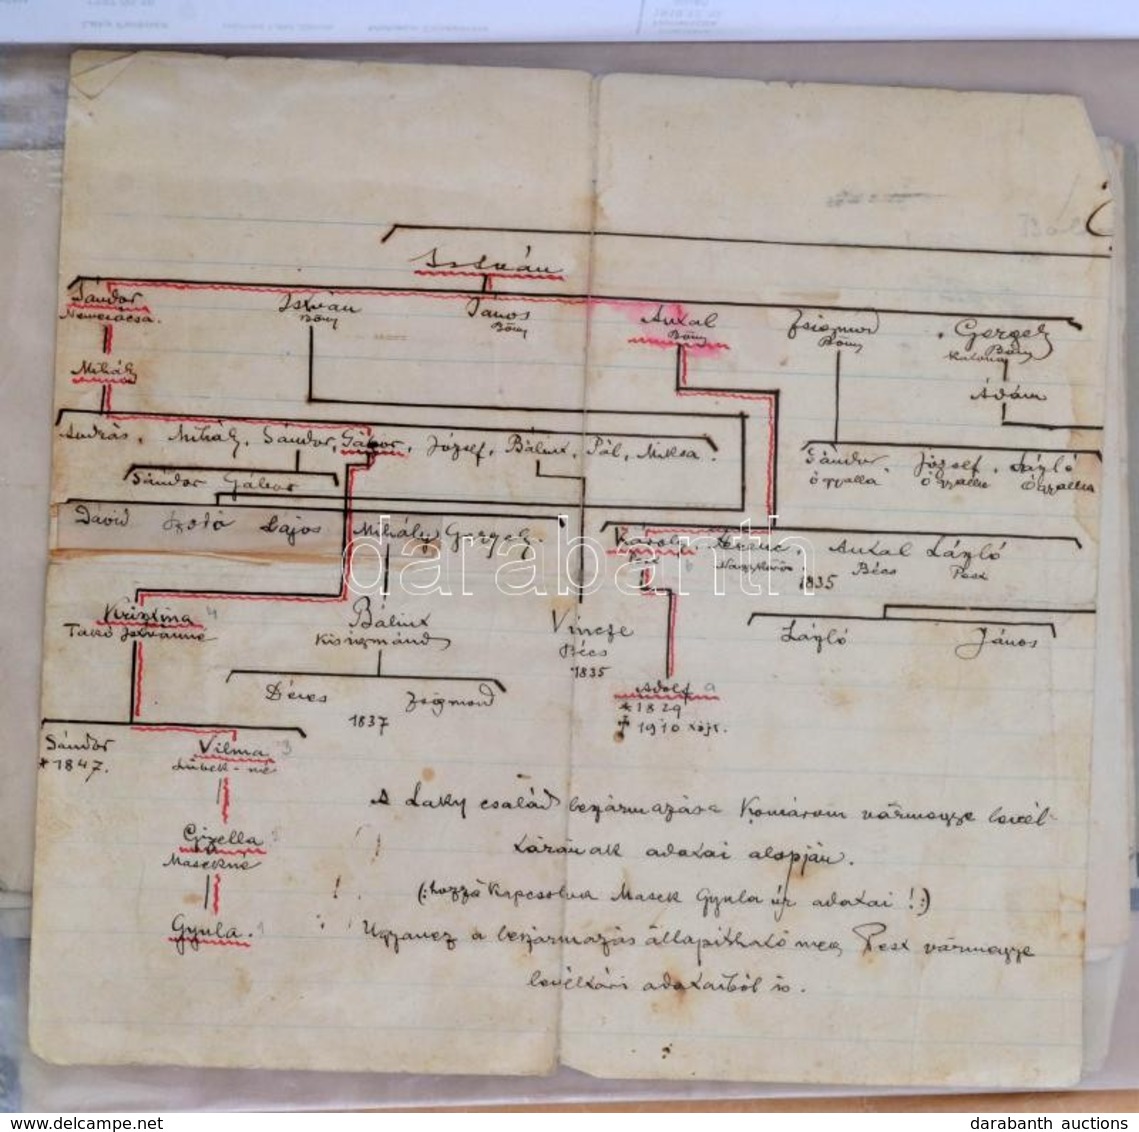 István
Sándor
Nemerácsa.
István
Bőny
János
Bőny
Antal
Bőny
Zsigmond
Bőny
Gergely
Bőny
Mihály
Ádám
András, Mihály, Sándor, Gábor, József, Bálint, Pál, Miksa.
Sándor Gábor
Sándor
Ógyalla
József,
Ógyalla
László
Ógyalla
Dávid
Lajos
Mihály Gergely.
Károly,
Pest
Ferenc,
Nagykőrös
Antal
Bécs
László
Pest
1835
Krisztina 4
Takó Istvánné
Bálint
Kisigmánd
Vincze
Bécs
1835
László
János
Adolf
* 1829
✝ 1910 szept.
Dénes
Zsigmond
1837
Sándor
* 1847.
Vilma 3
Gizella 2
Masekné
Gyula. 1
A Laky család leszármazása Komárom vármegye levél-
tárának adatai alapján.
(: hozzákapcsolva Masek Gyula úr adatai! :)
Ugyanez a leszármazás állapítható meg Pest vármegye
levéltári adataiból is.
darabanth
www.delcampe.net
darabanth auctions